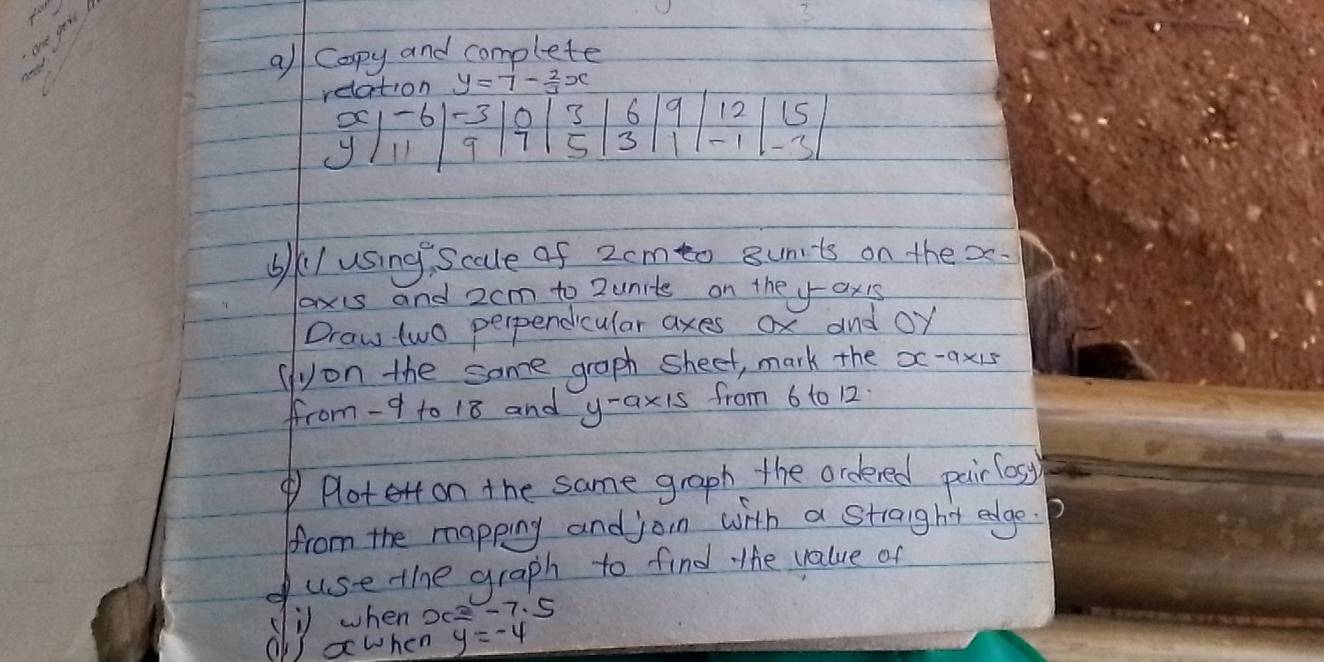 a) Copy and complete
relation y = 7 - 2/3 x
x | -6 | -3 | 0 | 3 | 6 | 9 | 12 | 15 |
y | 11 | 9 | 7 | 5 | 3 | 1 | -1 | -3 |
b) (i) using a Scale of 2cm to 3units on the x-
axis and 2cm to 2units on the y-axis
Draw two perpendicular axes OX and OY
(ii) on the same graph sheet, mark the x-axis
from -9 to 18 and y-axis from 6 to 12.
c) Plot on the same graph the ordered pair (x,y)
from the mapping and join with a straight edge.
d use the graph to find the value of
i) when x = -7.5
(ii) x when y = -4